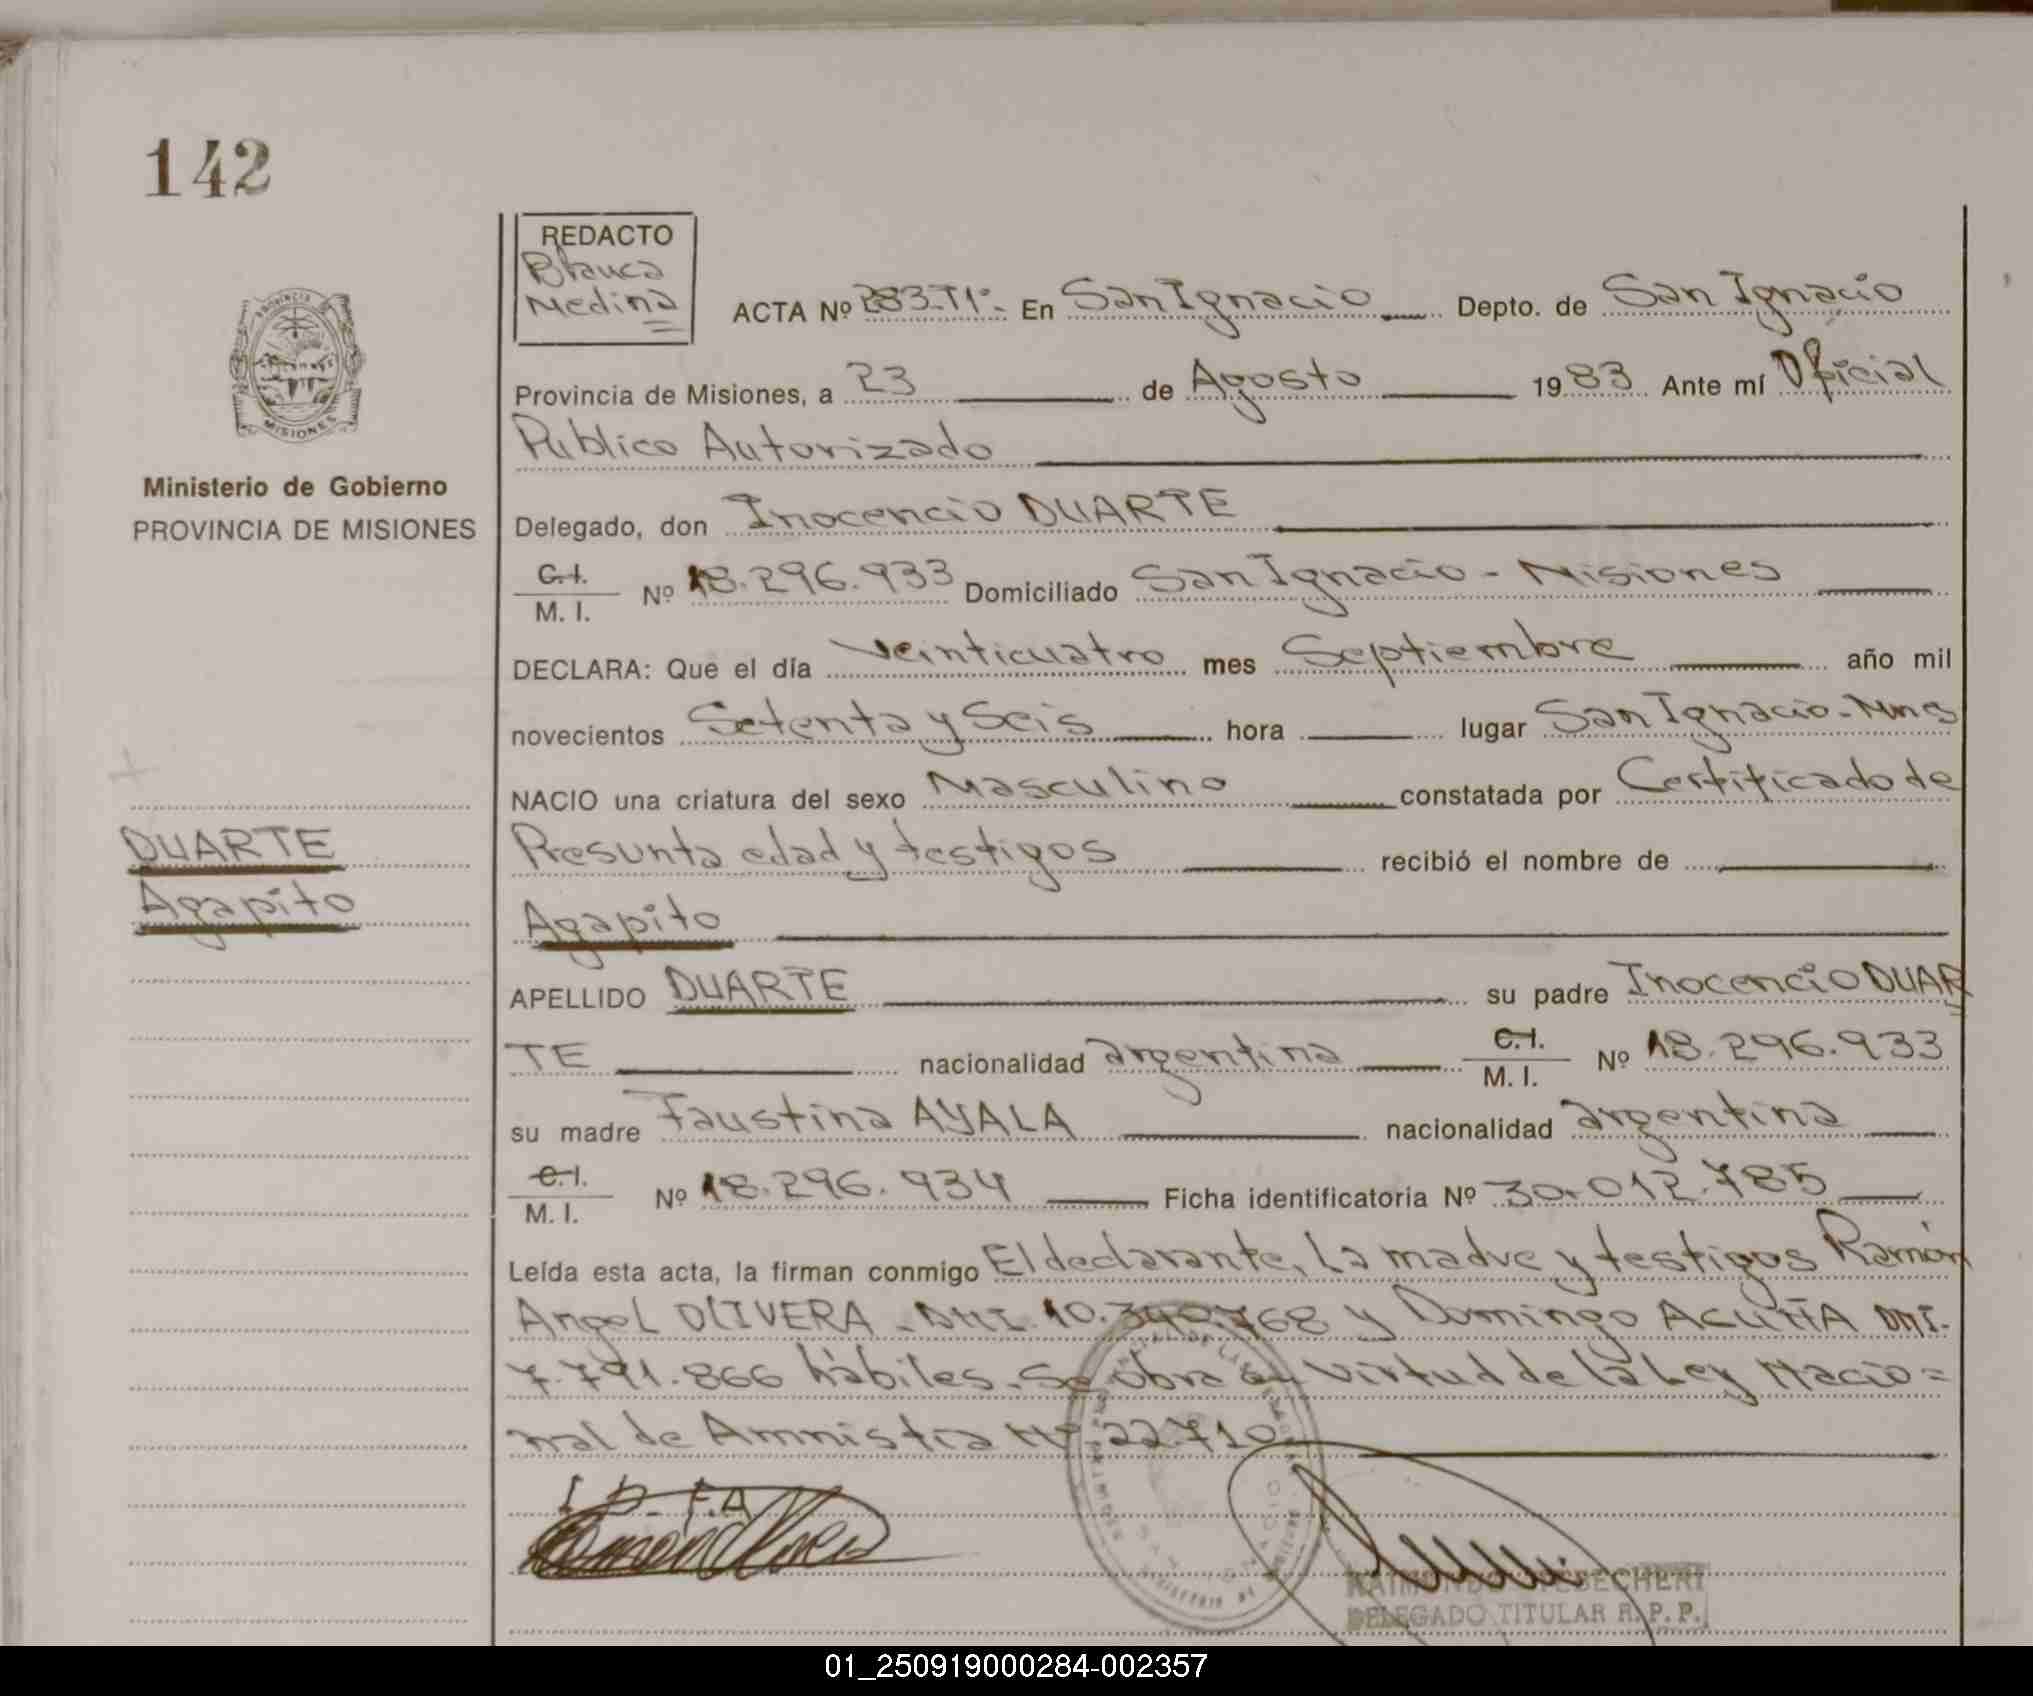 142
REDACTO
Blanca
Medina
ACTA Nº 283.T1º- En San Ignacio Depto. de San Ignacio
Provincia de Misiones, a 23 de Agosto 1983 Ante mí Oficial
Publico Autorizado
PROVINCIA
MISIONES
Ministerio de Gobierno
PROVINCIA DE MISIONES
Delegado, don Inocencio DUARTE
C.I.
M. I. Nº 18.296.933 Domiciliado San Ignacio - Misiones
DECLARA: Que el día veinticuatro mes Septiembre año mil
novecientos Setenta y Seis hora lugar San Ignacio-Mnes
NACIO una criatura del sexo Masculino constatada por Certificado de
Presunta edad y testigos recibió el nombre de
DUARTE
Agapito
Agapito
APELLIDO DUARTE su padre Inocencio DUAR
TE nacionalidad argentina C.I.
M. I. Nº 18.296.933
su madre Faustina AYALA nacionalidad argentina
C.I.
M. I. Nº 18.296.934 Ficha identificatoria Nº 30.012.785
Leída esta acta, la firman conmigo El declarante, la madre y testigos Ramón
Angel OLIVERA - DNI. 10.340.768 y Domingo ACUÑA DNI.
7.791.866 hábiles. Se obra en virtud de la Ley Nacio=
nal de Amnistia Nº 22.710
I D. F.A
RAIMUNDO
DELEGADO TITULAR R.P.P.
01_250919000284-002357